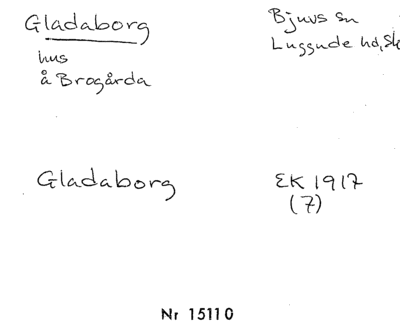 Gladaborg
hus
å Brogårda
Bjuvs sn
Luggude hd, Sk
Gladaborg
EK 1917
(7)
Nr 15110